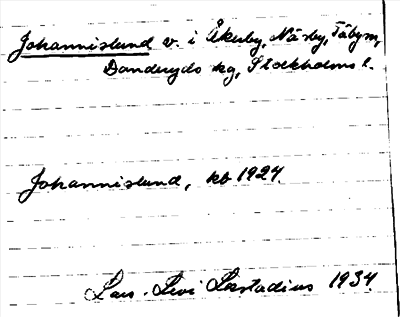 Johannislund v. i Åkerby, Näsby, Täby sn,
Danderyds kg, Stockholms l.
Johannislund, kb 1924.
Lars-Levi Læstadius 1934